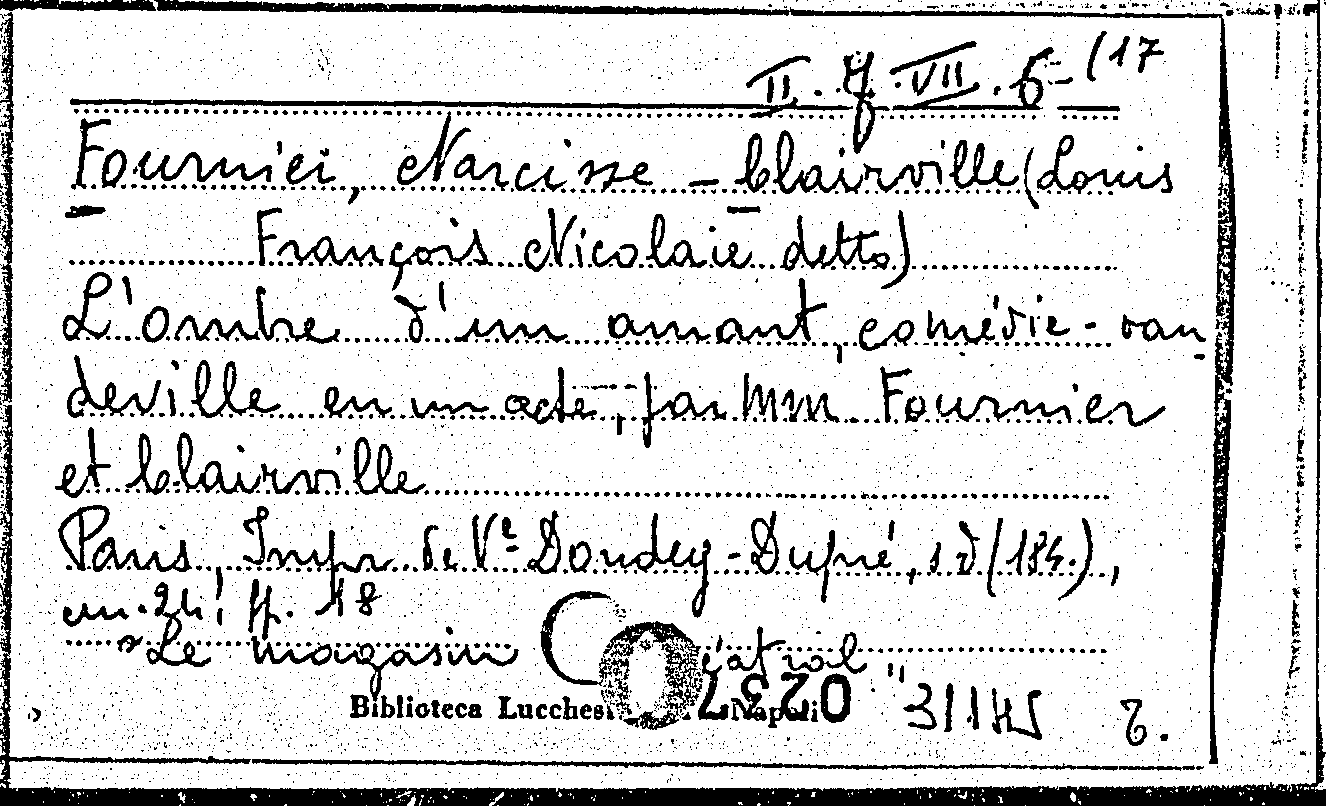 II. f. VII. 5 (17
Fournier, Narcisse - Clairville (Louis
François Nicolaie detto)
L'ombre d'un amant, comédie-vau
deville en un acte, par MM. Fournier
et Clairville
Paris, Impr. de Vᵉ Dondey-Dupré, s d (184.),
cm. 24! pp. 18
"Le magasin théatral"
Biblioteca Lucchesi Napoli
31145 7.